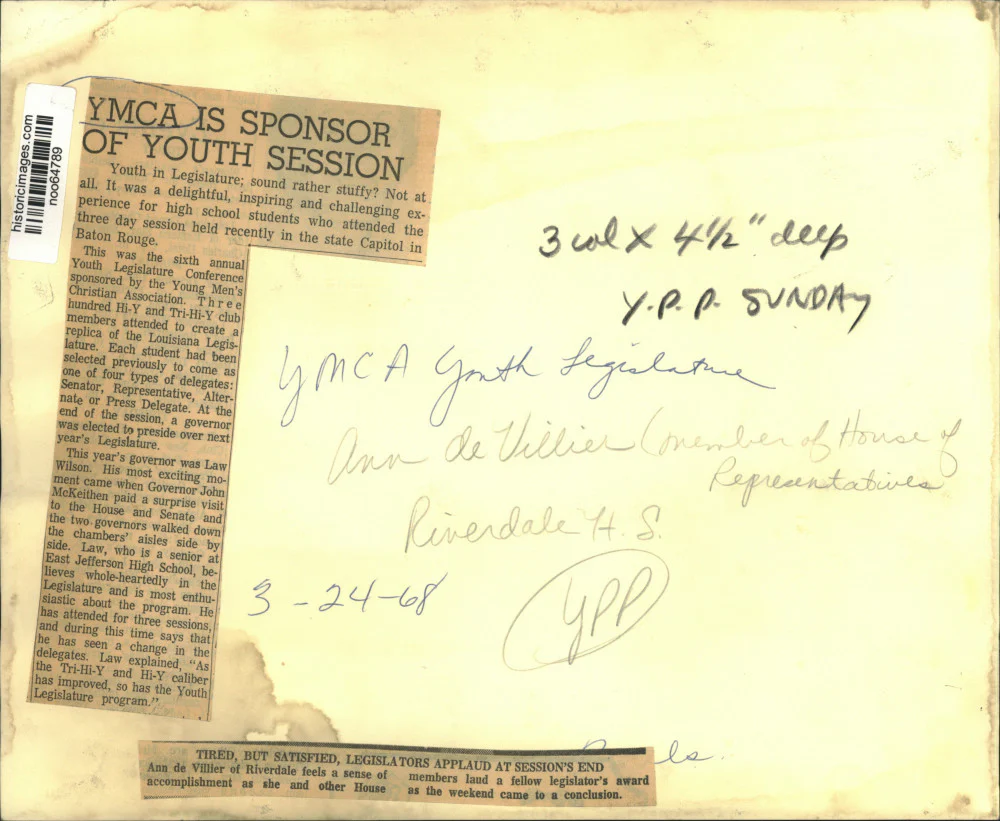 historicimages.com
noo64789
YMCA IS SPONSOR
OF YOUTH SESSION
Youth in Legislature; sound rather stuffy? Not at
all. It was a delightful, inspiring and challenging ex-
perience for high school students who attended the
three day session held recently in the state Capitol in
Baton Rouge.
This was the sixth annual
Youth Legislature Conference
sponsored by the Young Men's
Christian Association. Three
hundred Hi-Y and Tri-Hi-Y club
members attended to create a
replica of the Louisiana Legis-
lature. Each student had been
selected previously to come as
one of four types of delegates:
Senator, Representative, Alter-
nate or Press Delegate. At the
end of the session, a governor
was elected to preside over next
year's Legislature.
This year's governor was Law
Wilson. His most exciting mo-
ment came when Governor John
McKeithen paid a surprise visit
to the House and Senate and
the two governors walked down
the chambers' aisles side by
side. Law, who is a senior at
East Jefferson High School, be-
lieves whole-heartedly in the
Legislature and is most enthu-
siastic about the program. He
has attended for three sessions,
and during this time says that
he has seen a change in the
delegates. Law explained, "As
the Tri-Hi-Y and Hi-Y caliber
has improved, so has the Youth
Legislature program."
3 col X 4 1/2" deep
Y.P.P. SUNDAY
YMCA Youth Legislature
Ann de Villier (member of House of
Representatives
Riverdale H.S.
3-24-68
YPP
TIRED, BUT SATISFIED, LEGISLATORS APPLAUD AT SESSION'S END
Ann de Villier of Riverdale feels a sense of
accomplishment as she and other House
members laud a fellow legislator's award
as the weekend came to a conclusion.